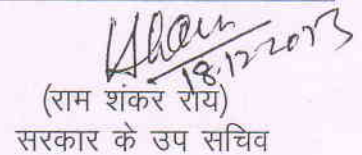 18.12.2013
(राम शंकर राय)
सरकार के उप सचिव